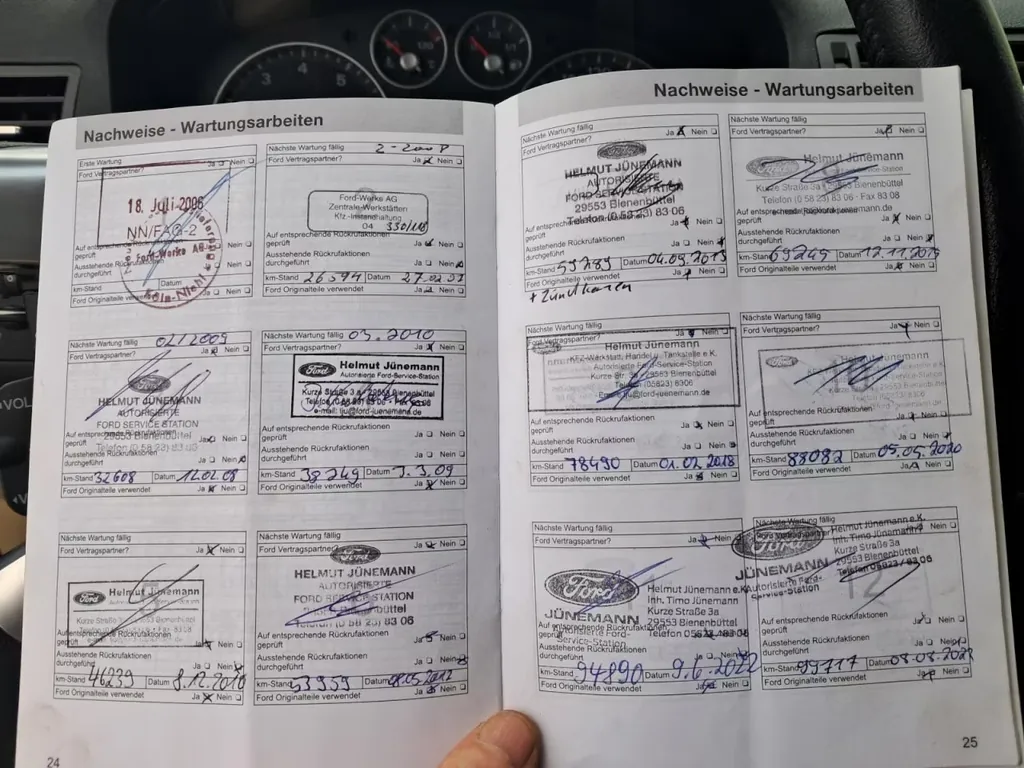 Nachweise - Wartungsarbeiten
Erste Wartung
Ford Vertragspartner? Ja Nein
18. Juli 2006
NN/FAG-2
Ford-Werke AG
Köln-Niehl
Auf entsprechende Rückrufaktionen geprüft Ja Nein
Ausstehende Rückrufaktionen durchgeführt Ja Nein
km-Stand Datum
Ford Originalteile verwendet Ja Nein
Nächste Wartung fällig 2-2008
Ford Vertragspartner? Ja Nein
Ford-Werke AG
Zentrale-Werkstätten
Kfz.-Instandhaltung
04
Auf entsprechende Rückrufaktionen
geprüft Ja Nein
Ausstehende Rückrufaktionen
durchgeführt Ja Nein
km-Stand 26594 Datum 27.02.07
Ford Originalteile verwendet Ja Nein
Nächste Wartung fällig 02/2009
Ford Vertragspartner? Ja Nein
Ford
HELMUT JÜNEMANN
AUTORISIERTE
FORD SERVICE STATION
29553 Bienenbüttel
Telefon (0 58 23) 83 06
Auf entsprechende Rückrufaktionen
geprüft Ja Nein
Ausstehende Rückrufaktionen
durchgeführt Ja Nein
km-Stand 32608 Datum 12.02.08
Ford Originalteile verwendet Ja Nein
Nächste Wartung fällig 03.2010
Ford Vertragspartner? Ja Nein
Ford Helmut Jünemann
Autorisierte Ford-Service-Station
Kurze Straße 3a 29553 Bienenbüttel
e-mail: tju@ford-juenemann.de
Auf entsprechende Rückrufaktionen
geprüft Ja Nein
Ausstehende Rückrufaktionen
durchgeführt Ja Nein
km-Stand 38249 Datum 3.3.09
Ford Originalteile verwendet Ja Nein
Nächste Wartung fällig
Ford Vertragspartner? Ja Nein
Ford Helmut Jünemann
Kurze Straße 3a
Auf entsprechende Rückrufaktionen
geprüft Ja Nein
Ausstehende Rückrufaktionen
durchgeführt Ja Nein
km-Stand 46239 Datum 8.12.2010
Ford Originalteile verwendet Ja Nein
Nächste Wartung fällig
Ford Vertragspartner? Ja Nein
Ford
HELMUT JÜNEMANN
AUTORISIERTE
FORD SERVICE STATION
29553 Bienenbüttel
Telefon (0 58 23) 83 06
Auf entsprechende Rückrufaktionen
geprüft Ja Nein
Ausstehende Rückrufaktionen
durchgeführt Ja Nein
km-Stand 53959 Datum 08.05.2012
Ford Originalteile verwendet Ja Nein
24
Nachweise - Wartungsarbeiten
Nächste Wartung fällig
Ford Vertragspartner? Ja Nein
HELMUT JÜNEMANN
AUTORISIERTE
FORD SERVICE STATION
29553 Bienenbüttel
Telefon (0 58 23) 83 06
Auf entsprechende Rückrufaktionen
geprüft Ja Nein
Ausstehende Rückrufaktionen
durchgeführt Ja Nein
km-Stand 59289 Datum
Ford Originalteile verwendet Ja Nein
+ Zündkerzen
Nächste Wartung fällig
Ford Vertragspartner? Ja Nein
Ford Helmut Jünemann
Kurze Straße 3a Bienenbüttel
Telefon (0 58 23) 83 06 - Fax 83 08
Auf entsprechende Rückrufaktionen
geprüft Ja Nein
Ausstehende Rückrufaktionen
durchgeführt Ja Nein
km-Stand 69245 Datum
Ford Originalteile verwendet Ja Nein
Nächste Wartung fällig
Ford Vertragspartner? Ja Nein
KFZ-Werkstatt, Handel u. Tankstelle e.K.
Autorisierte Ford-Service-Station
Kurze Str. 29553 Bienenbüttel
Tel. (05823) 8306
Auf entsprechende Rückrufaktionen
geprüft Ja Nein
Ausstehende Rückrufaktionen
durchgeführt Ja Nein
km-Stand 78490 Datum 01.02.2018
Ford Originalteile verwendet Ja Nein
Nächste Wartung fällig
Ford Vertragspartner? Ja Nein
Ford Helmut Jünemann
Auf entsprechende Rückrufaktionen
geprüft Ja Nein
Ausstehende Rückrufaktionen
durchgeführt Ja Nein
km-Stand 88082 Datum 05.05.2020
Ford Originalteile verwendet Ja Nein
Nächste Wartung fällig
Ford Vertragspartner? Ja Nein
Ford
JÜNEMANN
Autorisierte Ford-
Service-Station
Helmut Jünemann e.K.
Inh. Timo Jünemann
Kurze Straße 3a
29553 Bienenbüttel
Telefon 05823 / 83 06
Auf entsprechende Rückrufaktionen
geprüft
Ausstehende Rückrufaktionen
durchgeführt Ja Nein
km-Stand 94890 9.6.2022
Ford Originalteile verwendet Ja Nein
Nächste Wartung fällig
Ford
JÜNEMANN
Autorisierte Ford-
Service-Station
Helmut Jünemann e.K.
Inh. Timo Jünemann
Kurze Straße 3a
29553 Bienenbüttel
Telefon 05823 / 83 06
12
Auf entsprechende Rückrufaktionen
geprüft Ja Nein
Ausstehende Rückrufaktionen
durchgeführt Ja Nein
km-Stand 99717 Datum
Ford Originalteile verwendet Ja Nein
25